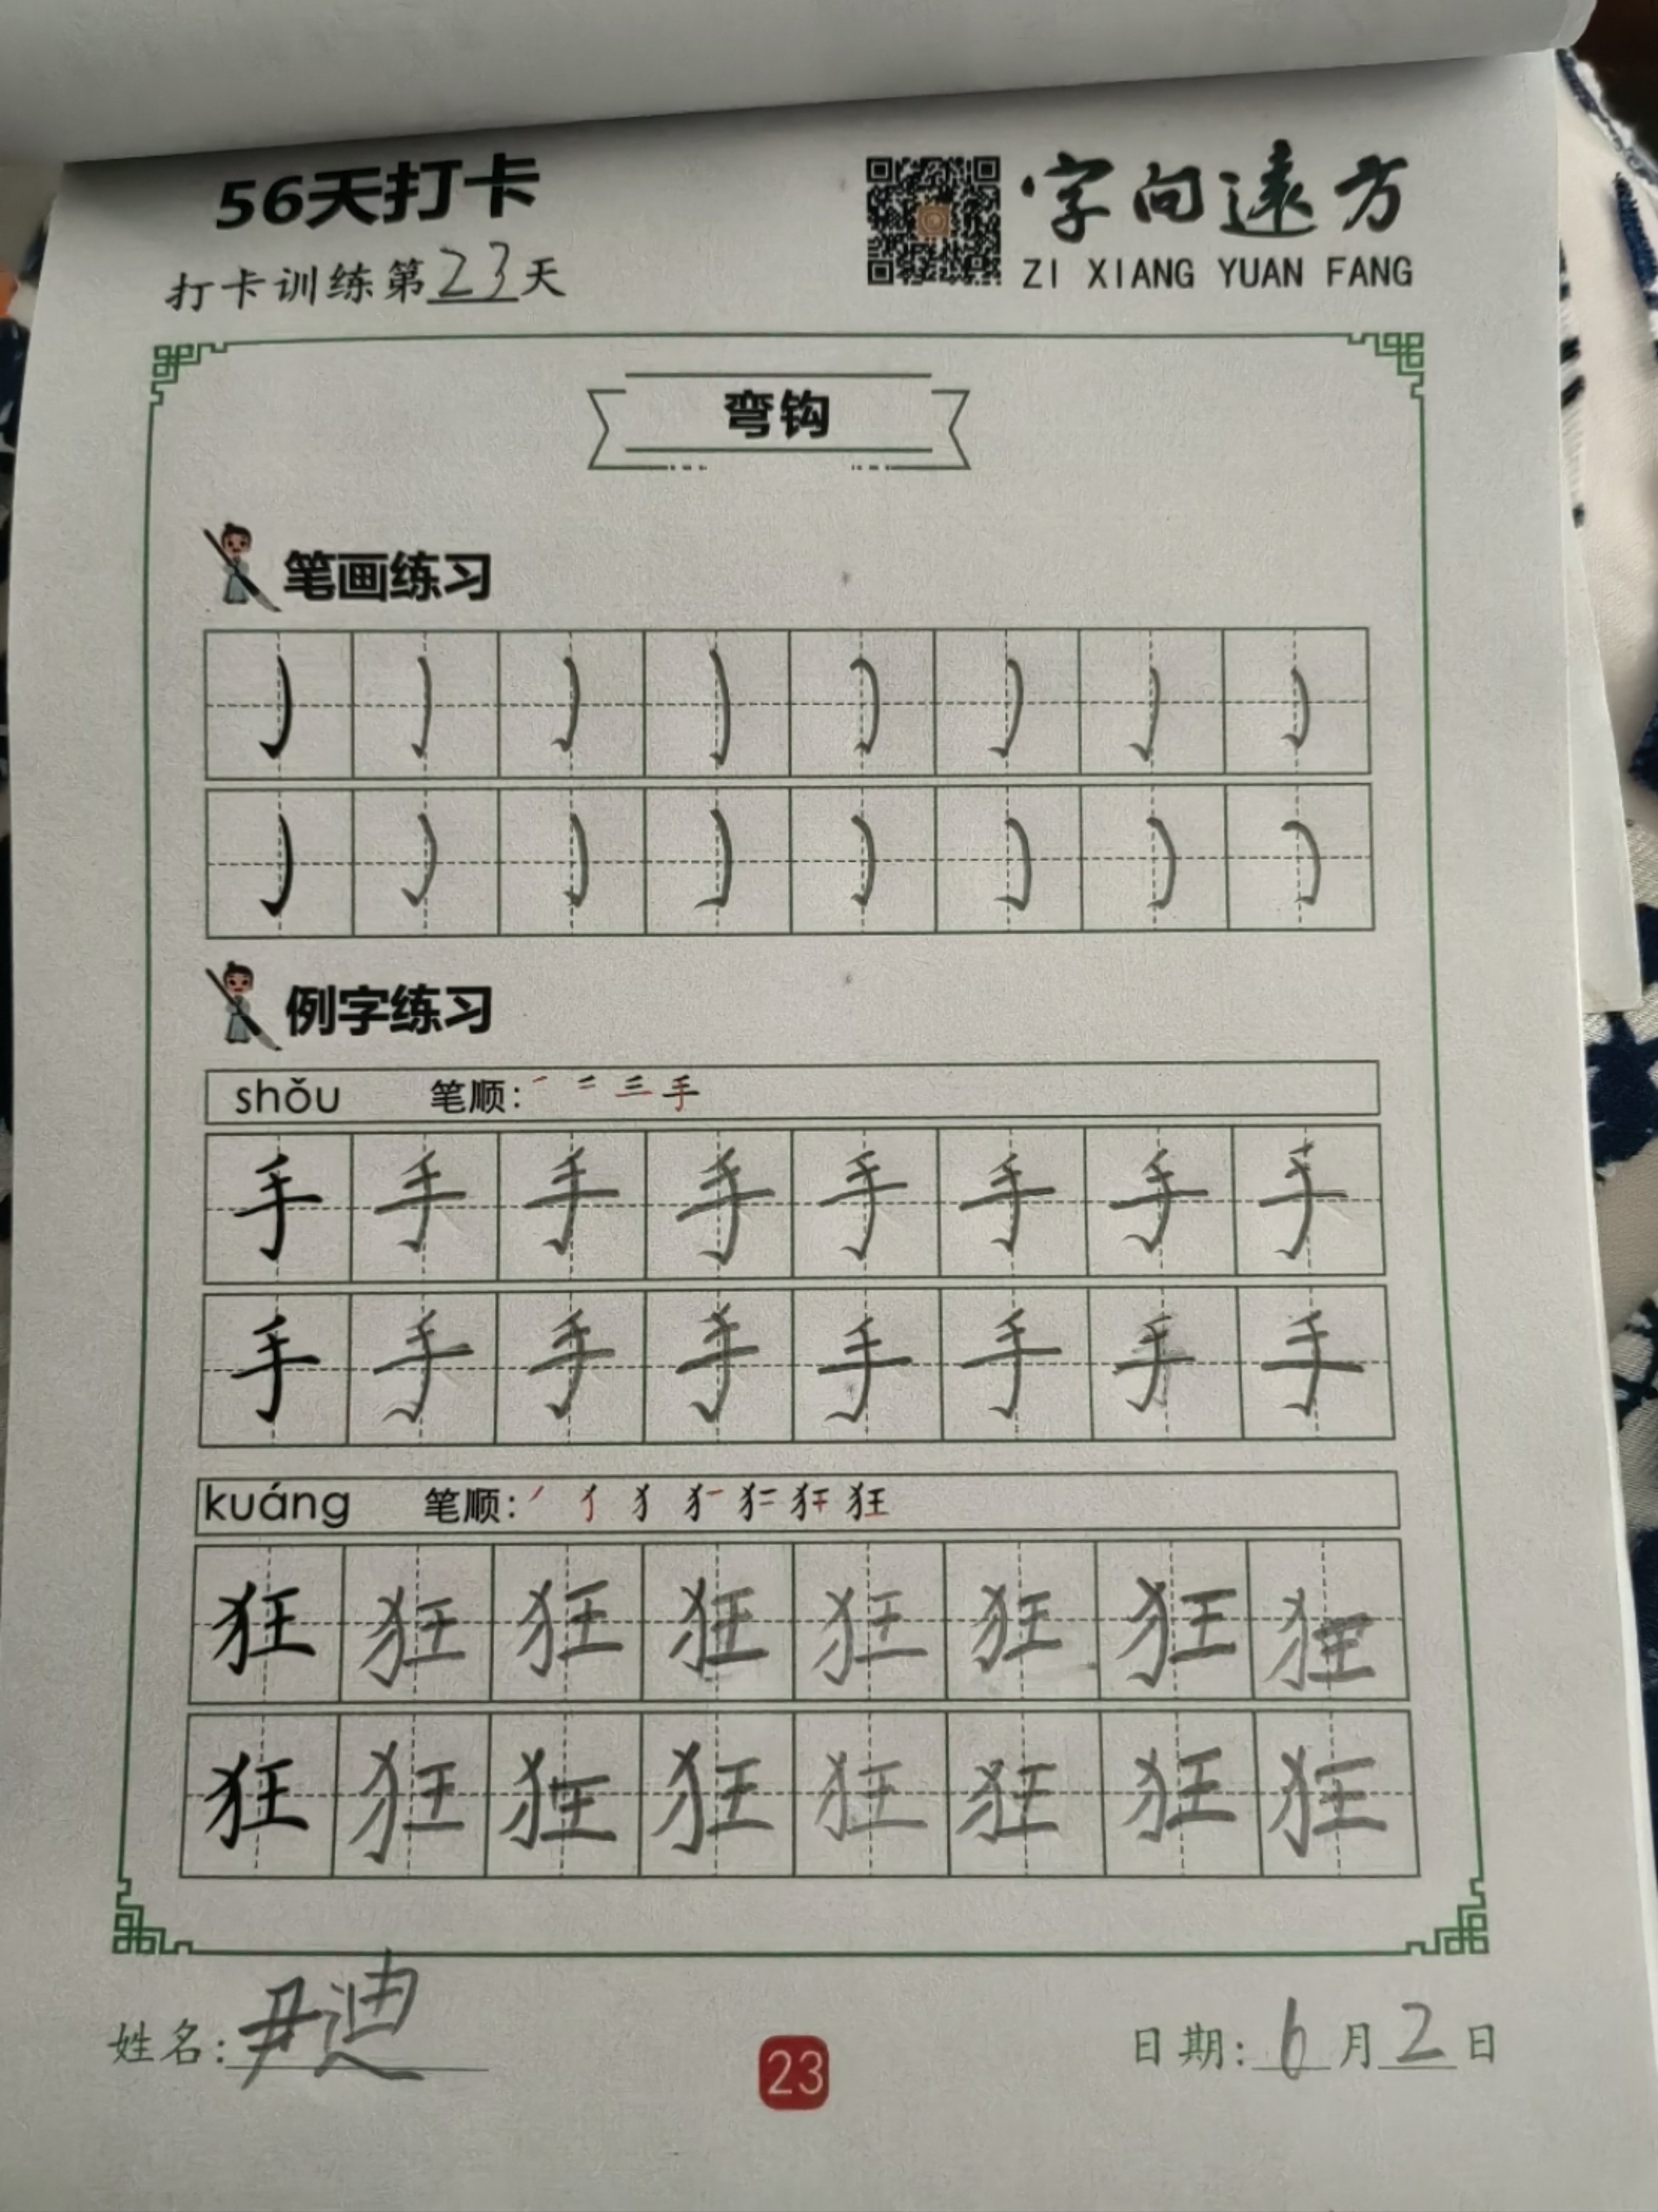 56天打卡
字向遠方
打卡训练第23天
ZI XIANG YUAN FANG
弯钩
笔画练习
例字练习
shǒu 笔顺: 一 二 三 手
手 手 手 手 手 手 手 手
手 手 手 手 手 手 手 手
kuáng 笔顺: 丿 犭 狂
狂 狂 狂 狂 狂 狂 狂 狂
狂 狂 狂 狂 狂 狂 狂 狂
姓名: 尹迪
23
日期: 6月2日